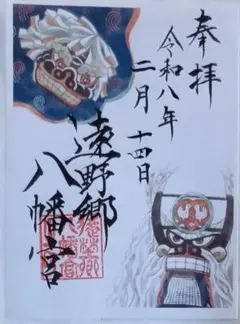 奉拝
令和八年
二月 十四日
遠野郷
八幡宮